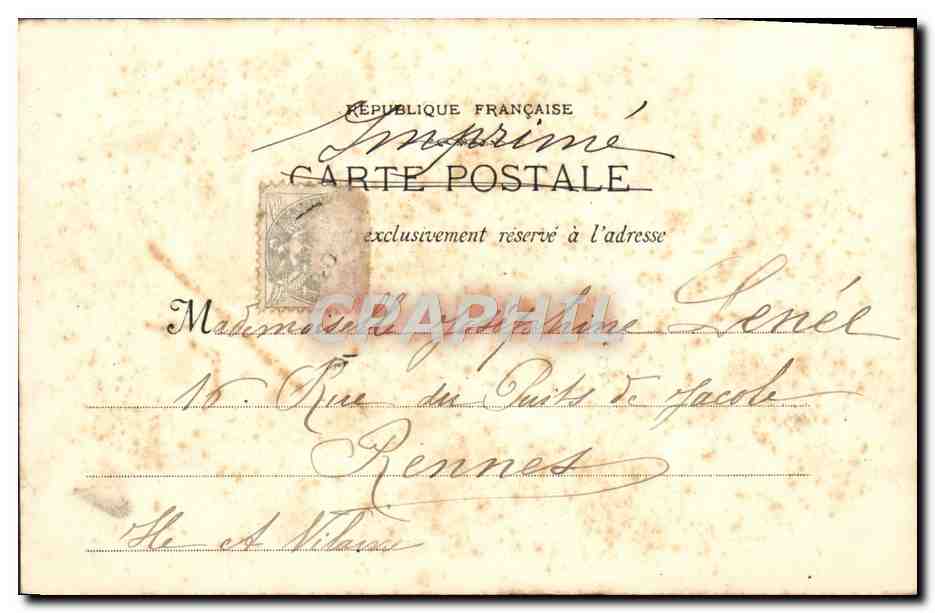 RÉPUBLIQUE FRANÇAISE
Imprimé
CARTE POSTALE
exclusivement réservé à l'adresse
Mademoiselle Joséphine Lenée
16. Rue du Puits de Jacob
Rennes
Ile et Vilaine
CPAPHIL